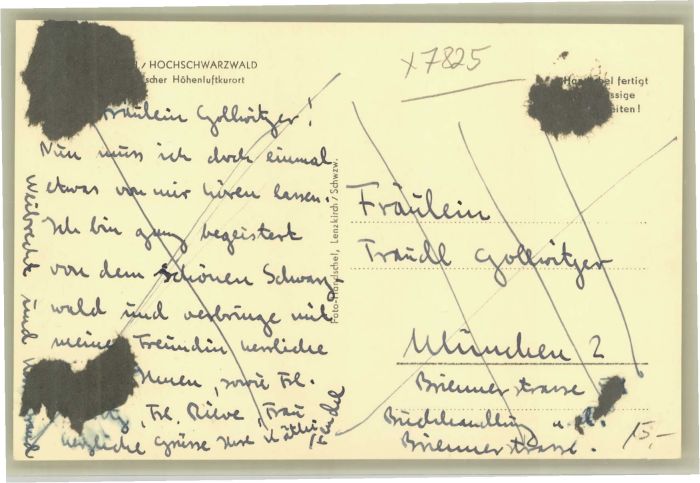 / HOCHSCHWARZWALD
scher Höhenluftkurort
x 7825
Handschel fertigt
ssige
eiten!
Fräulein Gollwitzer!
Nun muss ich doch einmal
etwas von mir hören lassen.
Ich bin ganz begeistert
von dem schönen Schwarz
wald und verbringe mit
meiner Freundin herrliche
Ihnen, sowie Frl.
Frl. Rieve, Frau
herzliche Grüsse
Weibrecht und
Foto-Handschel, Lenzkirch / Schwzw.
Fräulein
Traudl Gollwitzer
München 2
Briennerstrasse
Buchhandlung
Briennerstrasse.
15,-